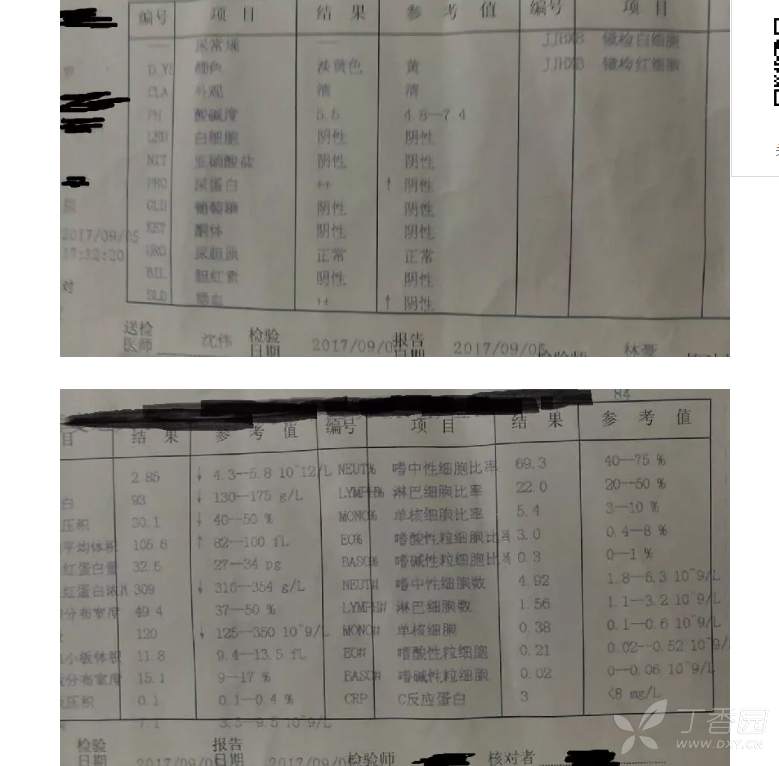 编号 项目 结果 参考值 编号 项目
尿常规 JJHX8 镜检白细胞
颜色 淡黄色 黄 镜检红细胞
CLA 外观 清 清
PH 酸碱度 5.5 4.8—7.4
白细胞 阴性 阴性
NIT 亚硝酸盐 阴性 阴性
PRO 尿蛋白 ++ ↑ 阴性
GLU 葡萄糖 阴性 阴性
KET 酮体 阴性 阴性
2017/09/05
URO 尿胆原 正常 正常
17:32:20
BIL 胆红素 阴性 阴性
BLD 隐血 ++ ↑ 阴性
送检医师 沈伟 检验日期 2017/09/0 报告日期 2017/09/05
84
目 结果 参考值 编号 项目 结果 参考值
2.85 ↓ 4.3—5.8 10^12/L NEUT% 嗜中性细胞比率 69.3 40—75 %
白 93 ↓ 130—175 g/L LYMPH% 淋巴细胞比率 22.0 20—50 %
压积 30.1 ↓ 40—50 % MONO% 单核细胞比率 5.4 3—10 %
平均体积 105.6 ↑ 82—100 fL EO% 嗜酸性粒细胞比率 3.0 0.4—8 %
红蛋白量 32.5 27—34 pg BASO% 嗜碱性粒细胞比率 0.3 0—1 %
红蛋白浓度 309 ↓ 316—354 g/L NEUT# 嗜中性细胞数 4.92 1.8—6.3 10^9/L
分布宽度 49.4 37—50 % LYMPH# 淋巴细胞数 1.56 1.1—3.2 10^9/L
120 ↓ 125—350 10^9/L MONO# 单核细胞 0.38 0.1—0.6 10^9/L
小板体积 11.8 9.4—13.5 fL EO# 嗜酸性粒细胞 0.21 0.02—0.52 10^9/
分布宽度 15.1 9—17 % BASO# 嗜碱性粒细胞 0.02 0—0.06 10^9/L
压积 0.1 0.1—0.4 % CRP C反应蛋白 3 <8 mg/L
7.1 3.5—9.5 10^9/L
检验日期 2017/09/05 报告日期 2017/09/05 检验师 核对者
丁香园
www.dxy.cn